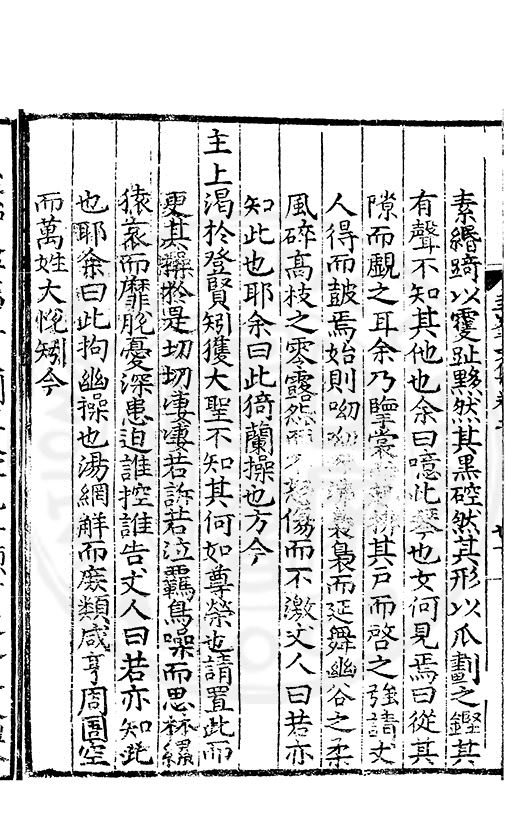 素縉踦以雙趾黟然其黑硿然其形以爪劃之鏗其
有聲不知其他也余曰噫此琴也女何見焉曰從其
隙而覷之耳余乃其戸而啓之強請丈
人得而鼓焉始則呦呦裊裊而延舞幽谷之柔
風碎高枝之零露怨而傷而不激丈人曰若亦
知此也耶余曰此猗蘭操也方今
主上渴於登賢矧獲大聖不知其何如尊榮也請置此而
更其操於是切切凄凄若訴若泣羈鳥噪而思林纍
猿哀而靡脱憂深患迫誰控誰告丈人曰若亦知此
也耶余曰此拘幽操也湯網解而庶類咸亨周圄空
而萬姓大悅矧今